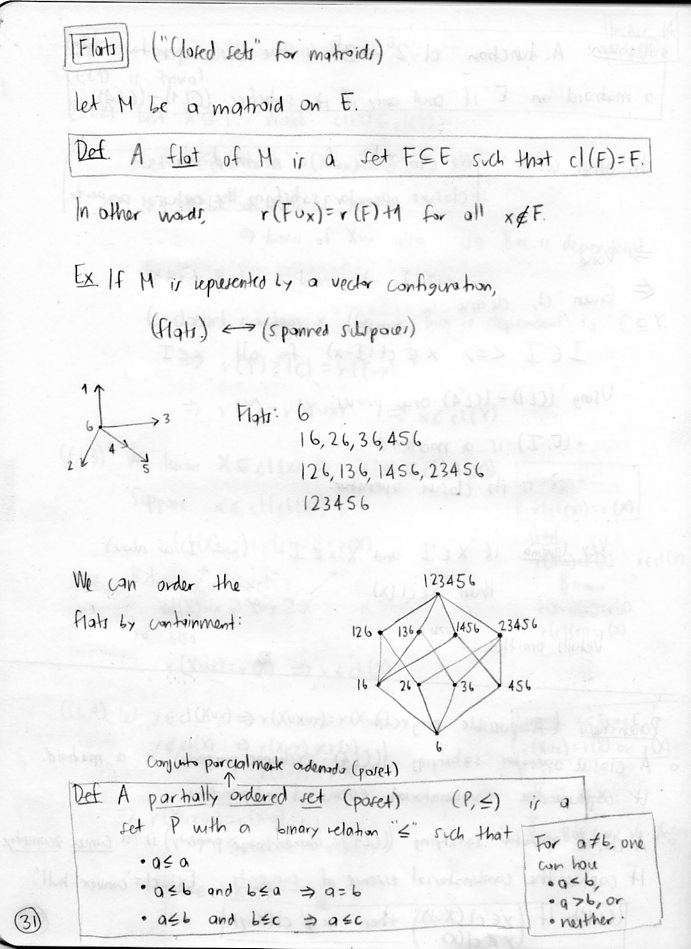 Flats ("Closed sets" for matroids)
Let M be a matroid on E.
Def. A flat of M is a set F⊆E such that cl(F)=F.
In other words, r(F∪x)=r(F)+1 for all x∉F.
Ex. If M is represented by a vector configuration,
(flats) ↔ (spanned subspaces)
1
6
3
4
2
5
Flats: 6
16, 26, 36, 456
126, 136, 1456, 23456
123456
We can order the
flats by containment:
123456
126 136 1456 23456
16 26 36 456
6
Conjunto parcialmente ordenado (poset)
Def A partially ordered set (poset) (P, ≤) is a
set P with a binary relation "≤" such that
• a≤a
• a≤b and b≤a ⇒ a=b
• a≤b and b≤c ⇒ a≤c
For a≠b, one
can have
• a<b,
• a>b, or
• neither.
31